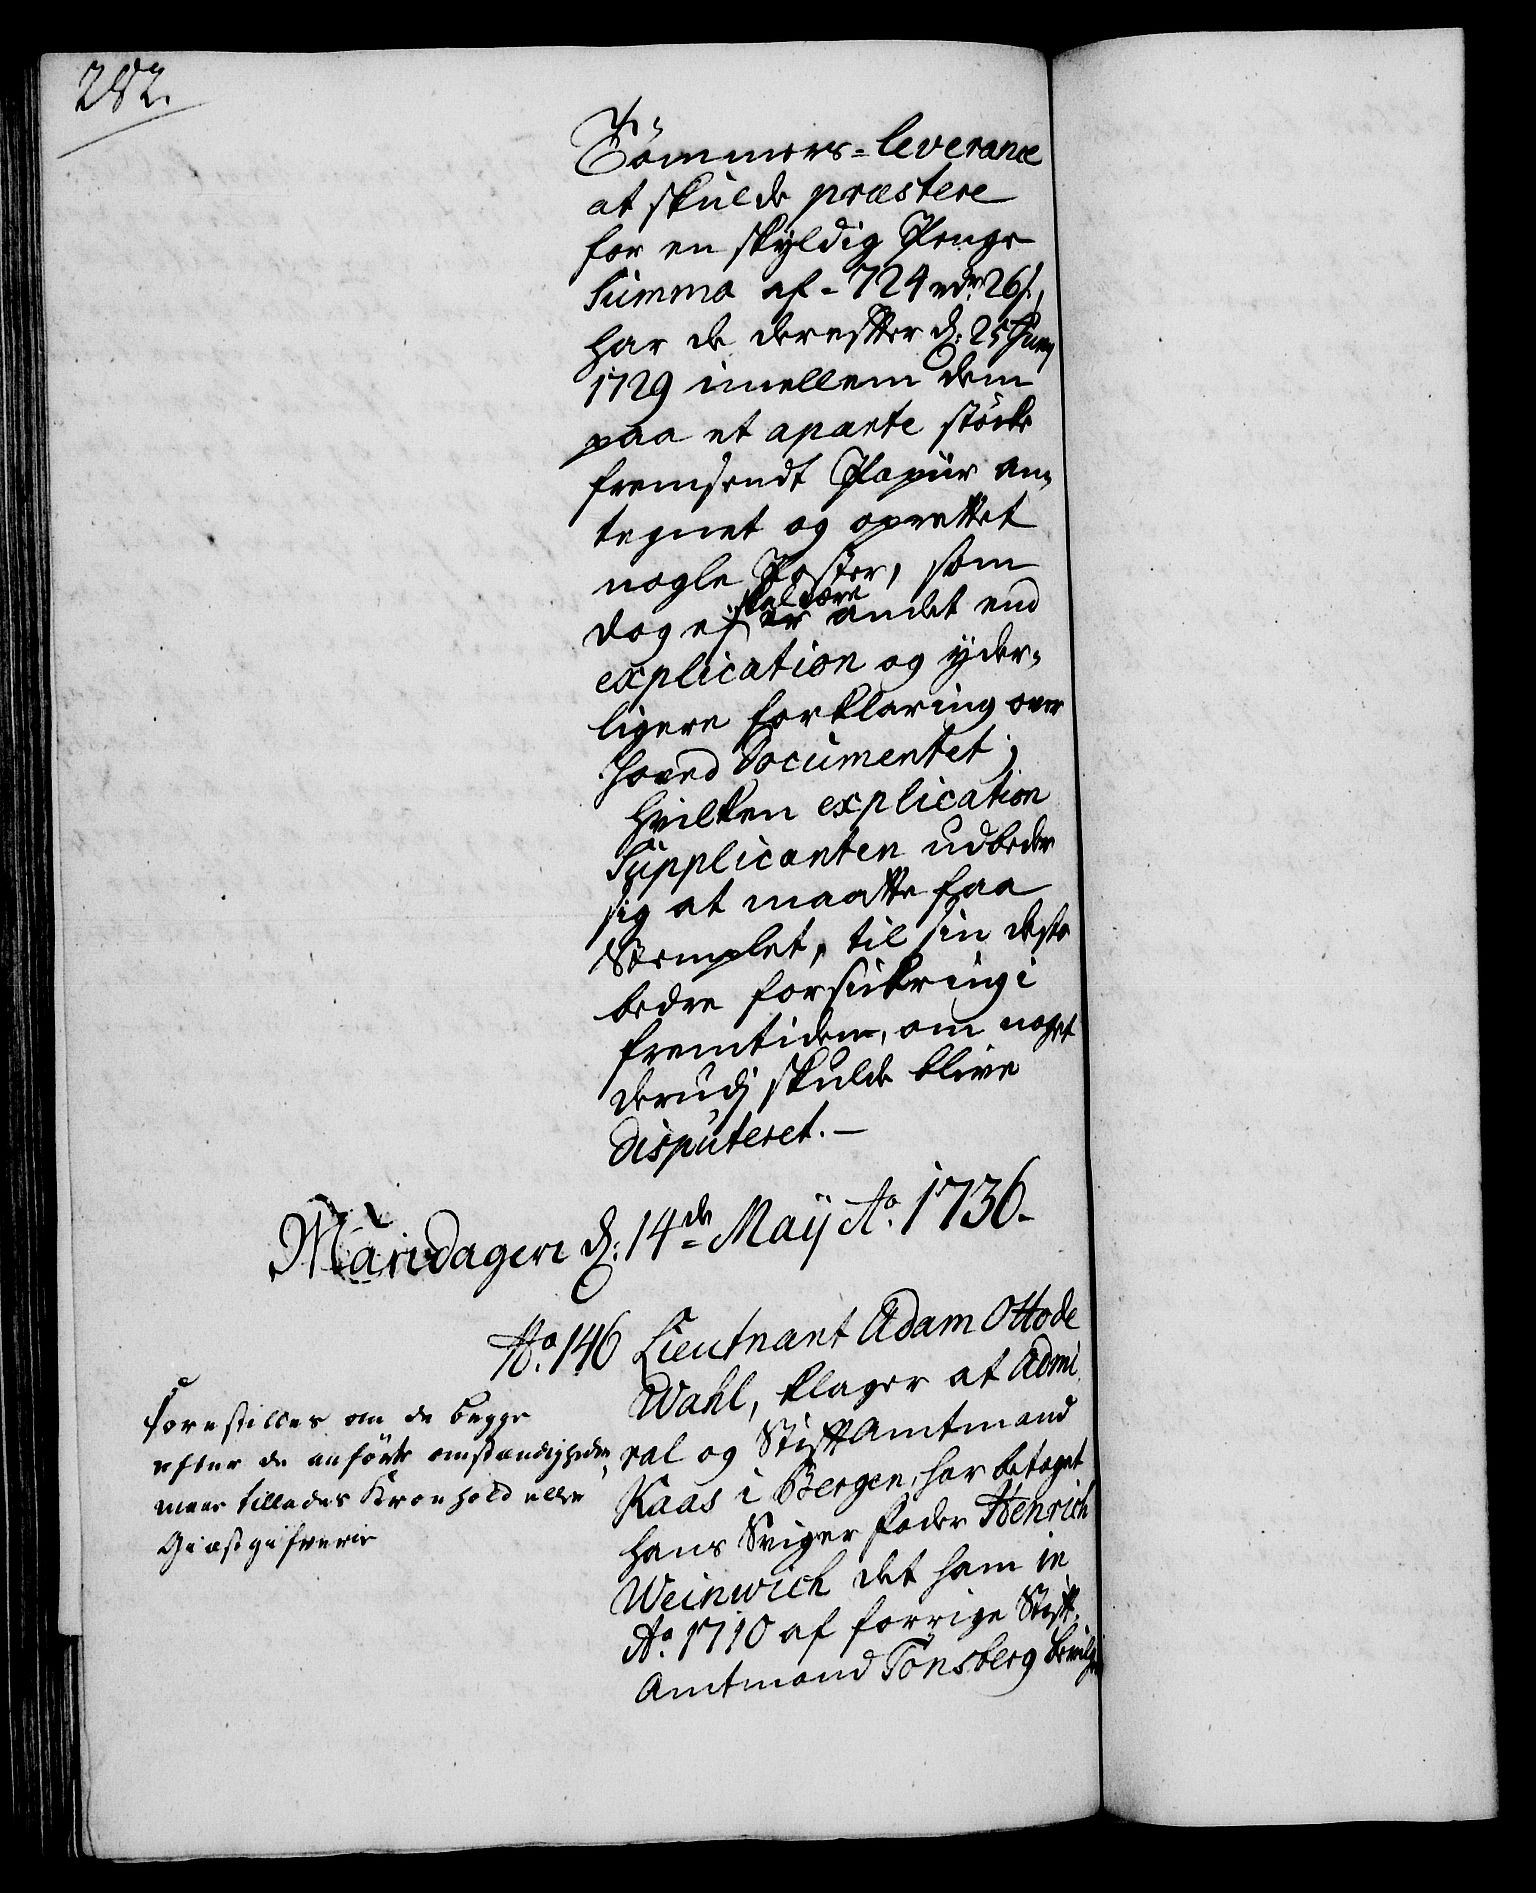 282.
Tömmers=leverance
at skulde præstere
for en skyldig Penge
Summa af - 724 rdr. 26 s.,
har de derefter d: 25 Juny
1729 imellem dem
paa et aparte støcke
fremsendt Papiir an-
tegnet og oprettet
nogle Poster, som
dog ej skal være andet end
explication og yder-
ligere forklaring over
hoved Documentet;
hvilken explication
Supplicanten udbeder
sig at maatte faa
Stemplet, til sin deste
bedre forsickring i
fremtiden, om noget
derudj skulde blive
disputeret. —
Mandagen d: 14de Maij Ao. 1736.
No. 146 Lieutnant Adam Otto de
Wahl, klager at Admi-
ral og Stiftamtmand
Kaas i Bergen, har betaget
hans Sviger Fader Henrich
Weinwich det ham in
Ao. 1710 af forrige Stift-
Amtmand Tönsberg bevilg
Forestilles om de begge
efter de anførte omstændigheder
maae tillades Kroehold eller
Giæstgifverie